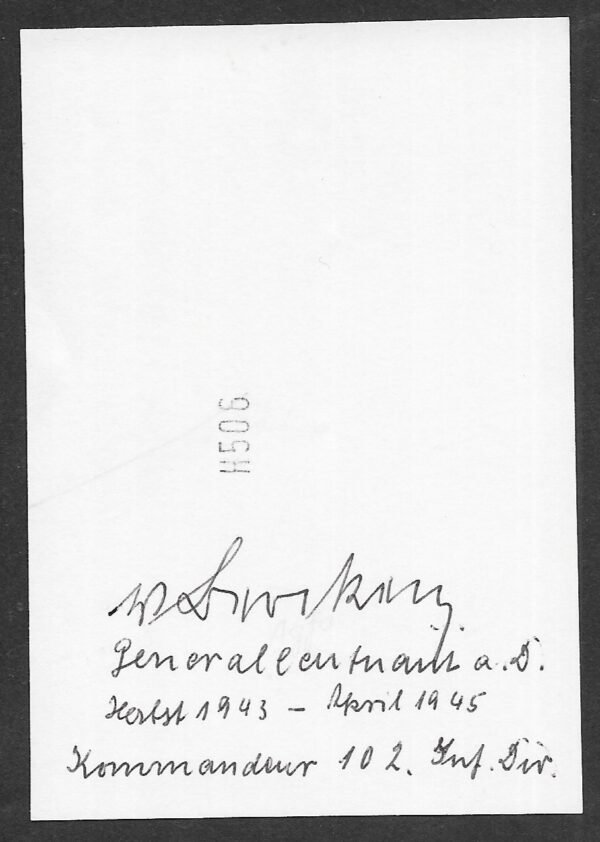 H506
WvBercken
Generalleutnant a.D.
Herbst 1943 – April 1945
Kommandeur 102. Inf. Div.